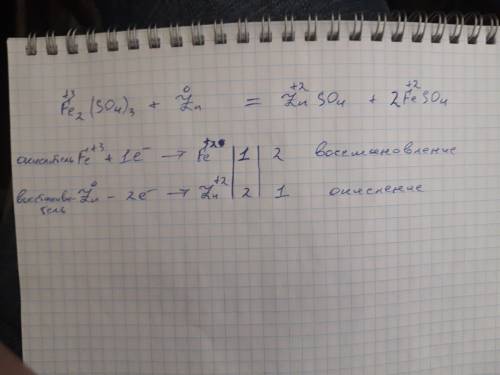 +3 0 +2 +2
Fe₂(SO₄)₃ + Zn = ZnSO₄ + 2FeSO₄
окислитель Fe⁺³ + 1e⁻ → Fe⁺² | 1 | 2 восстановление
восстанови- Zn⁰ - 2e⁻ → Zn⁺² | 2 | 1 окисление
тель